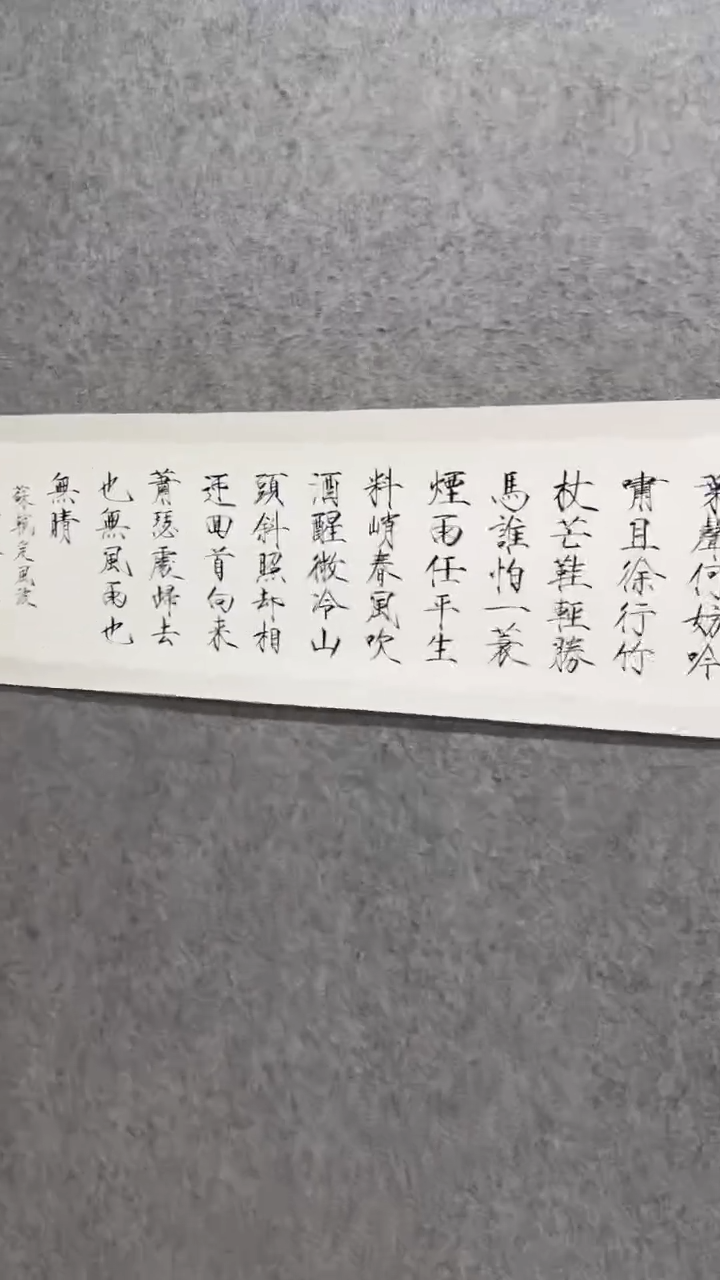 葉聲何妨吟
嘯且徐行竹
杖芒鞋輕勝
馬誰怕一蓑
煙雨任平生
料峭春風吹
酒醒微冷山
頭斜照却相
迎回首向来
蕭瑟處歸去
也無風雨也
無晴
蘇軾定風波